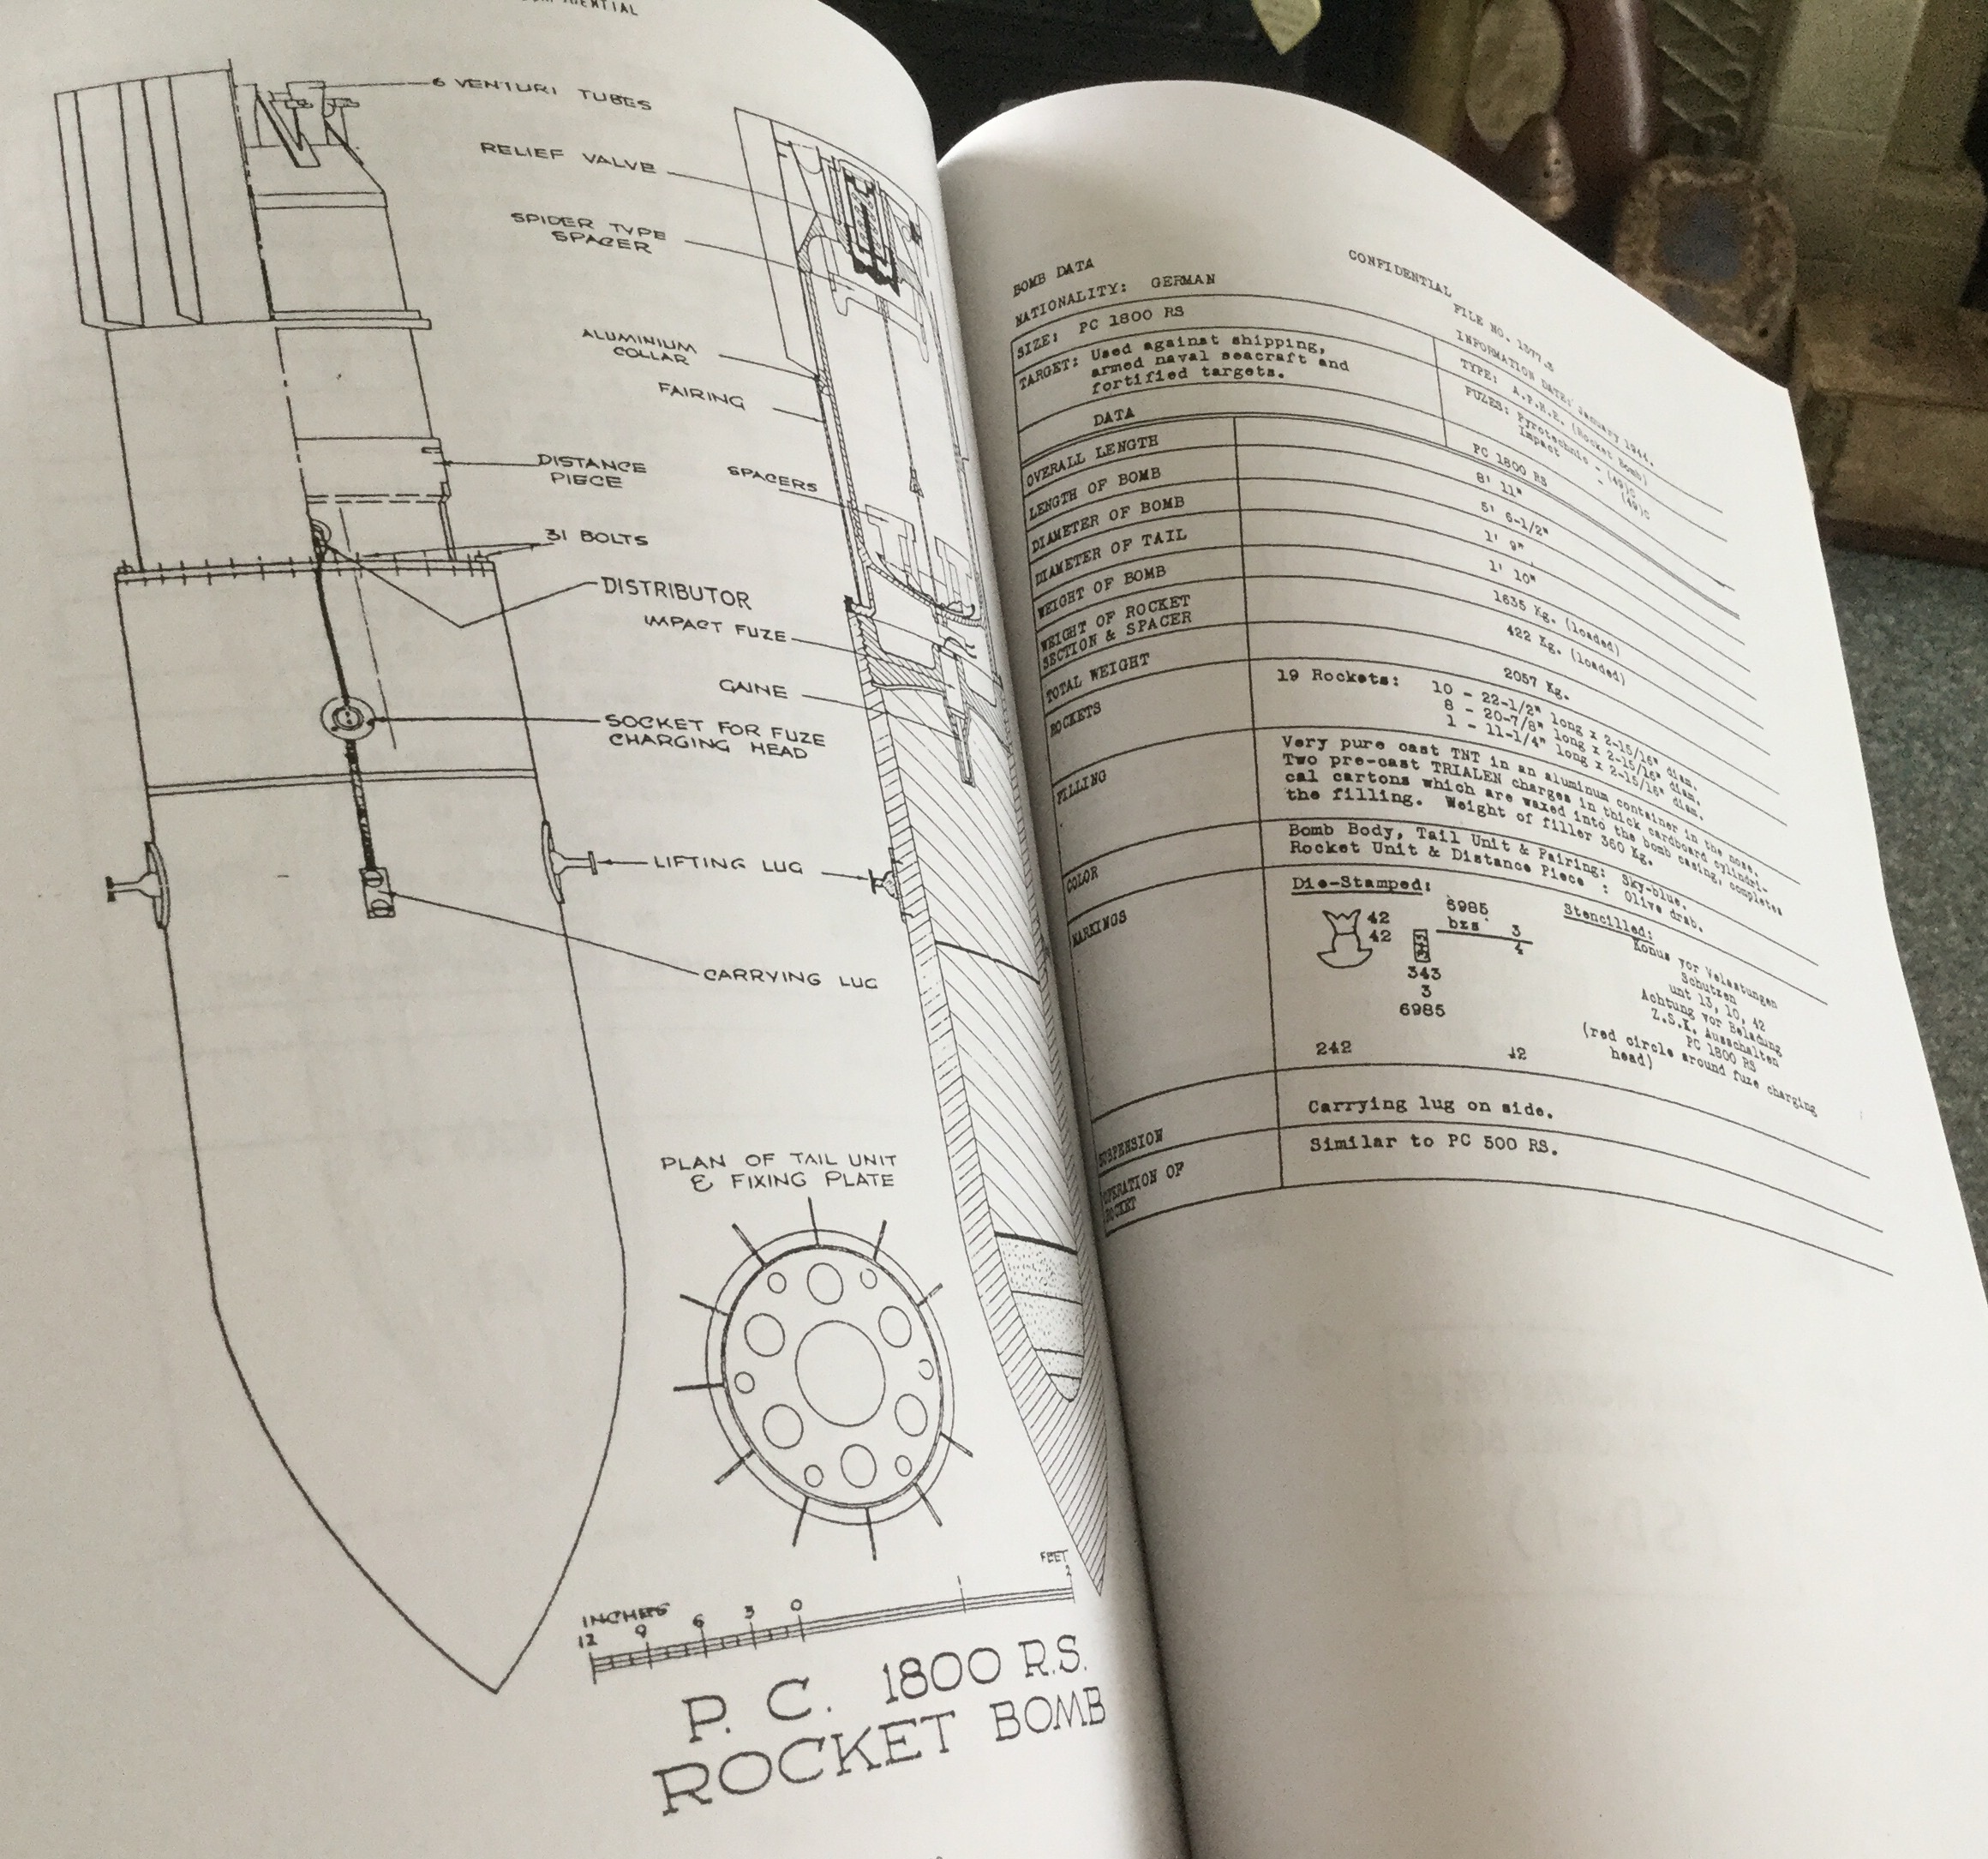 6 VENTURI TUBES
RELIEF VALVE
SPIDER TYPE
SPACER
ALUMINIUM
COLLAR
FAIRING
DISTANCE
PIECE
SPACERS
31 BOLTS
DISTRIBUTOR
IMPACT FUZE
GAINE
SOCKET FOR FUZE
CHARGING HEAD
LIFTING LUG
CARRYING LUG
PLAN OF TAIL UNIT
& FIXING PLATE
INCHES
12 9 6 3 0 1 2
FEET
P. C. 1800 R.S.
ROCKET BOMB
CONFIDENTIAL
BOMB DATA
FILE NO. 1377.3
NATIONALITY: GERMAN
INFORMATION DATE: January 1944.
SIZE: PC 1800 RS
TYPE: A.P.H.E. (Rocket Bomb)
TARGET: Used against shipping,
armed naval seacraft and
fortified targets.
FUZES: Pyrotechnic - (49)C
Impact - (49)C
DATA
PC 1800 RS
OVERALL LENGTH 8' 11"
LENGTH OF BOMB 5' 6-1/2"
DIAMETER OF BOMB 1' 9"
DIAMETER OF TAIL 1' 10"
WEIGHT OF BOMB 1635 Kg. (loaded)
WEIGHT OF ROCKET
SECTION & SPACER 422 Kg. (loaded)
TOTAL WEIGHT 2057 Kg.
ROCKETS 19 Rockets: 10 - 22-1/2" long x 2-15/16" diam.
8 - 20-7/8" long x 2-15/16" diam.
1 - 11-1/4" long x 2-15/16" diam.
FILLING Very pure cast TNT in an aluminum container in the nose.
Two pre-cast TRIALEN charges in thick cardboard cylindri-
cal cartons which are waxed into the bomb casing, completes
the filling. Weight of filler 360 Kg.
COLOR Bomb Body, Tail Unit & Fairing: Sky-blue.
Rocket Unit & Distance Piece : Olive drab.
MARKINGS Die-Stamped:
42
42
6985
bzs 3
4
343
3
6985
242 12
Stencilled:
Konus vor Velastungen
Schutzen
unt 13, 10, 42
Achtung vor Beladung
Z.S.K. Ausschalten
PC 1800 RS
(red circle around fuze charging
head)
SUSPENSION Carrying lug on side.
OPERATION OF
ROCKET Similar to PC 500 RS.